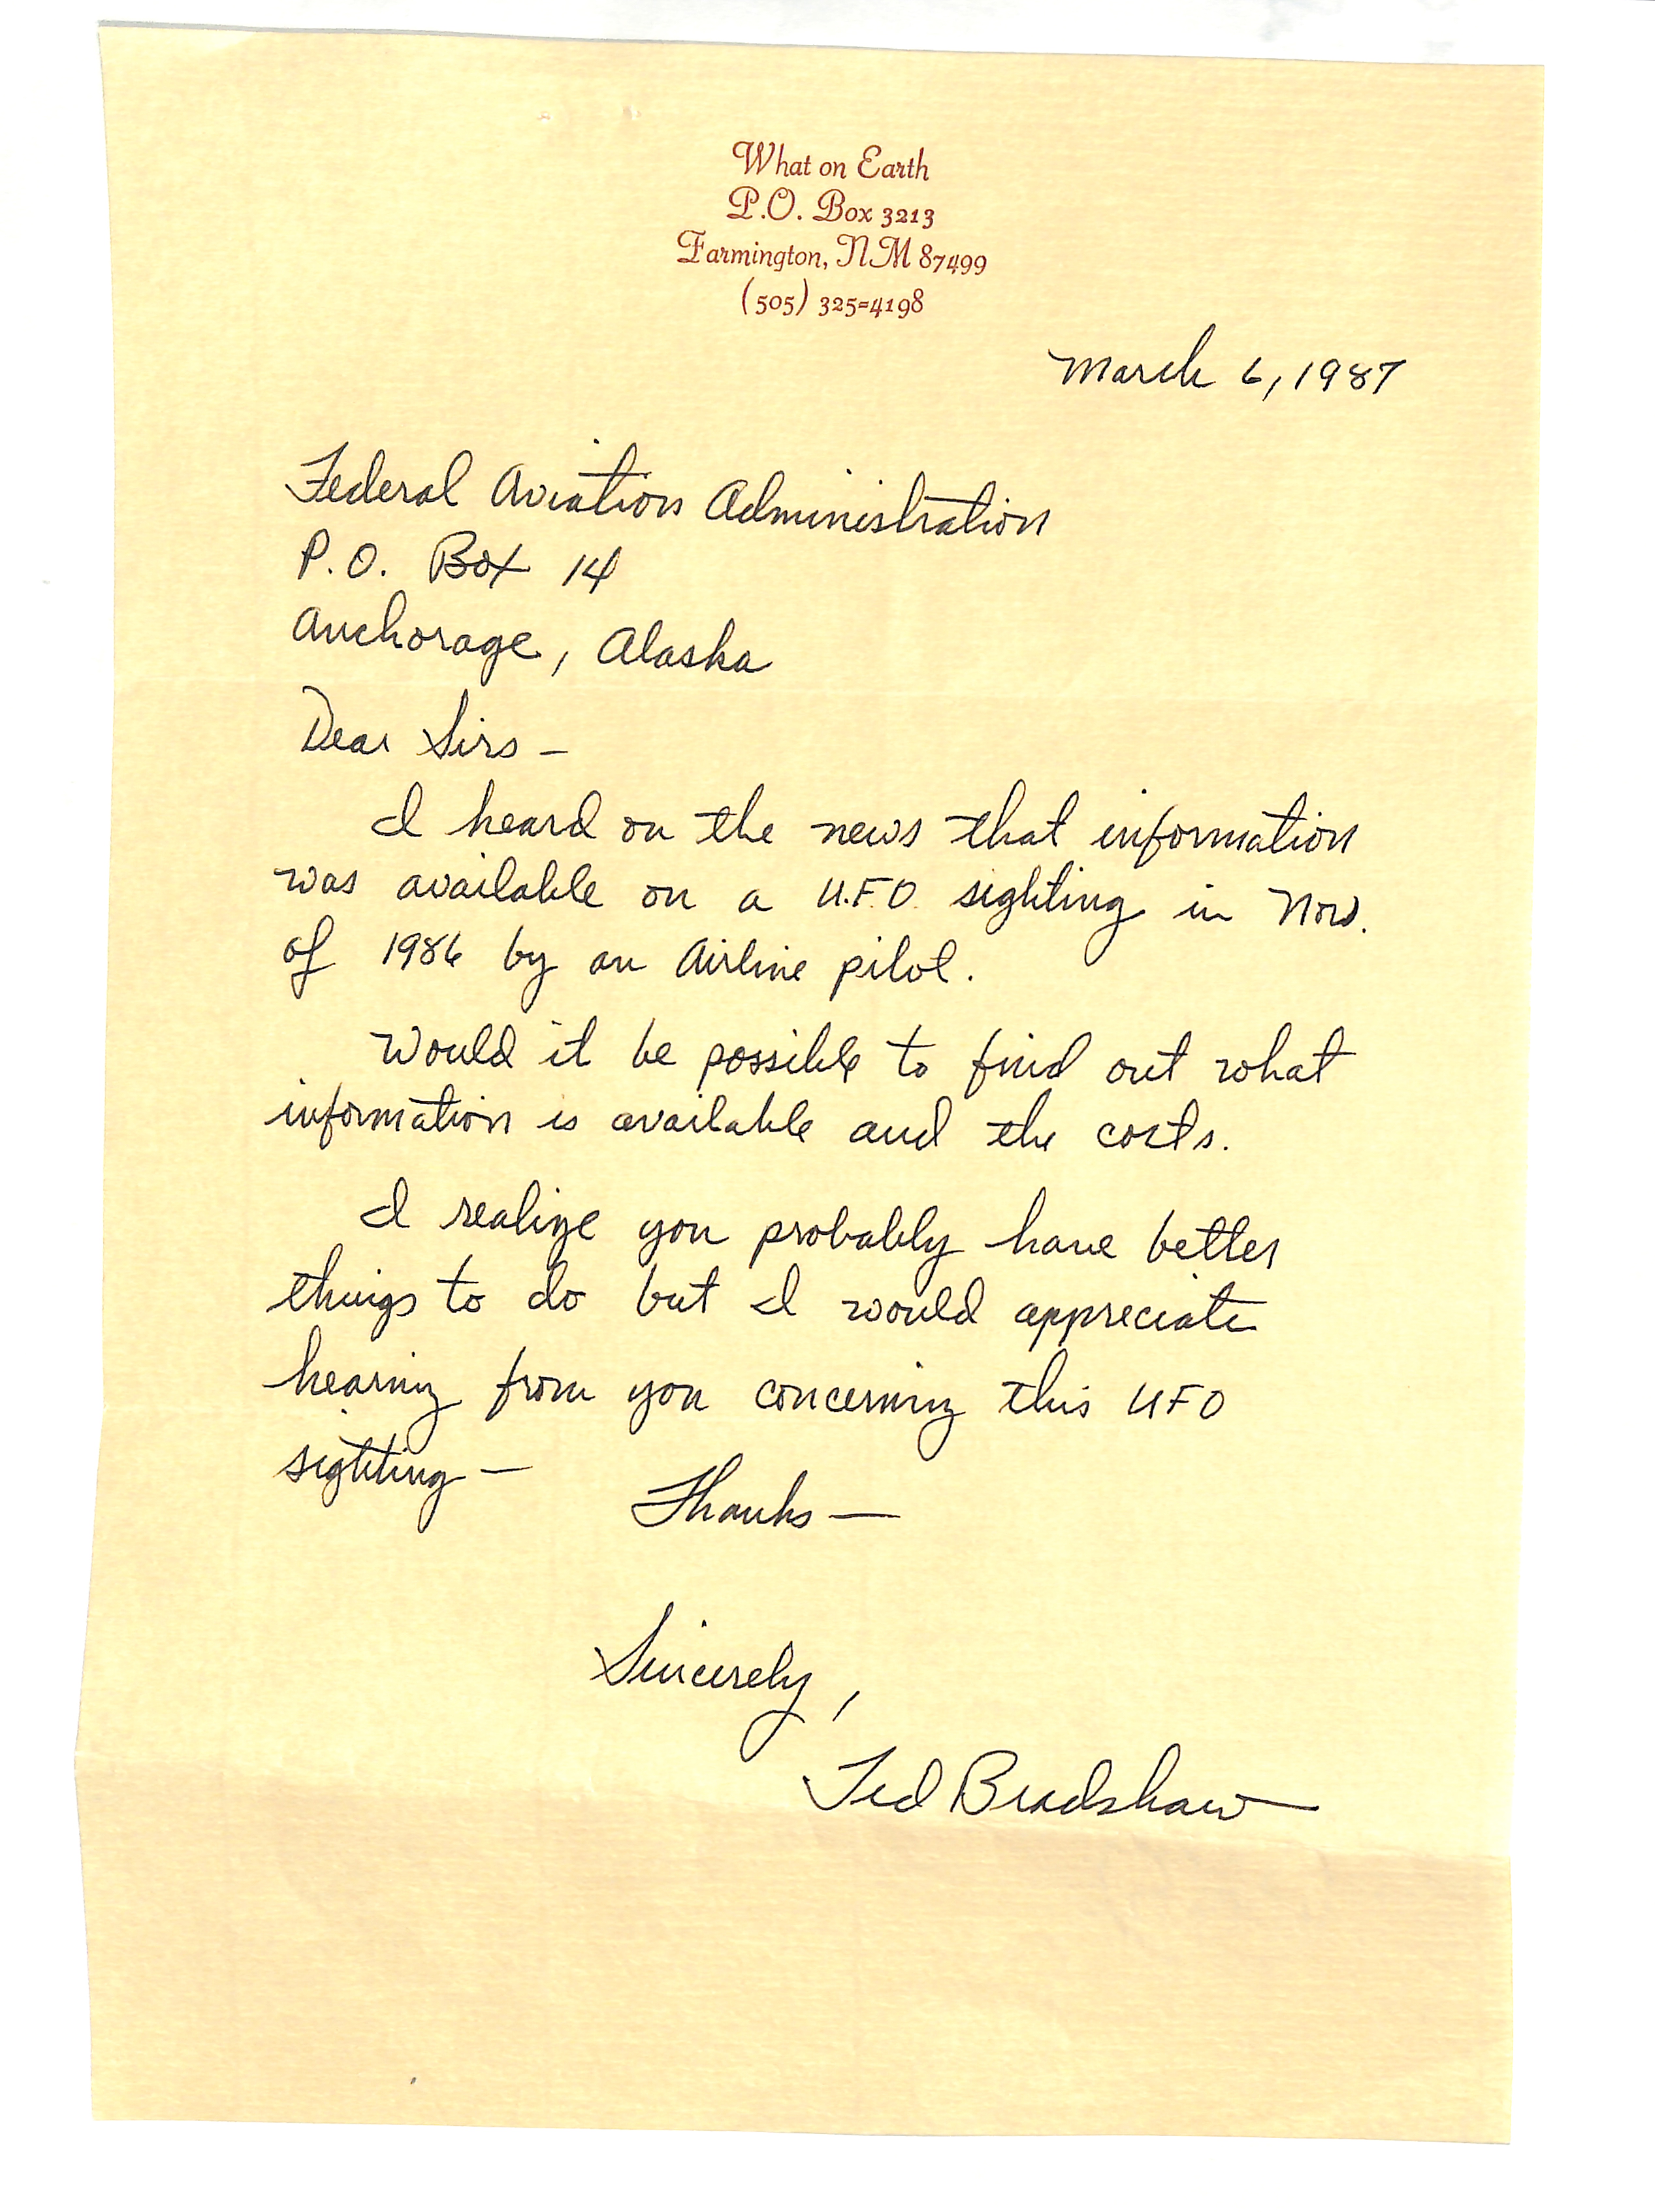 What on Earth
P.O. Box 3213
Farmington, NM 87499
(505) 325=4198
March 6, 1987
Federal Aviation Administration
P.O. Box 14
Anchorage, Alaska
Dear Sirs -
I heard on the news that information
was available on a U.F.O. sighting in Nov.
of 1986 by an Airline pilot.
Would it be possible to find out what
information is available and the costs.
I realize you probably have better
things to do but I would appreciate
hearing from you concerning this UFO
sighting -
Thanks —
Sincerely,
Ted Bradshaw